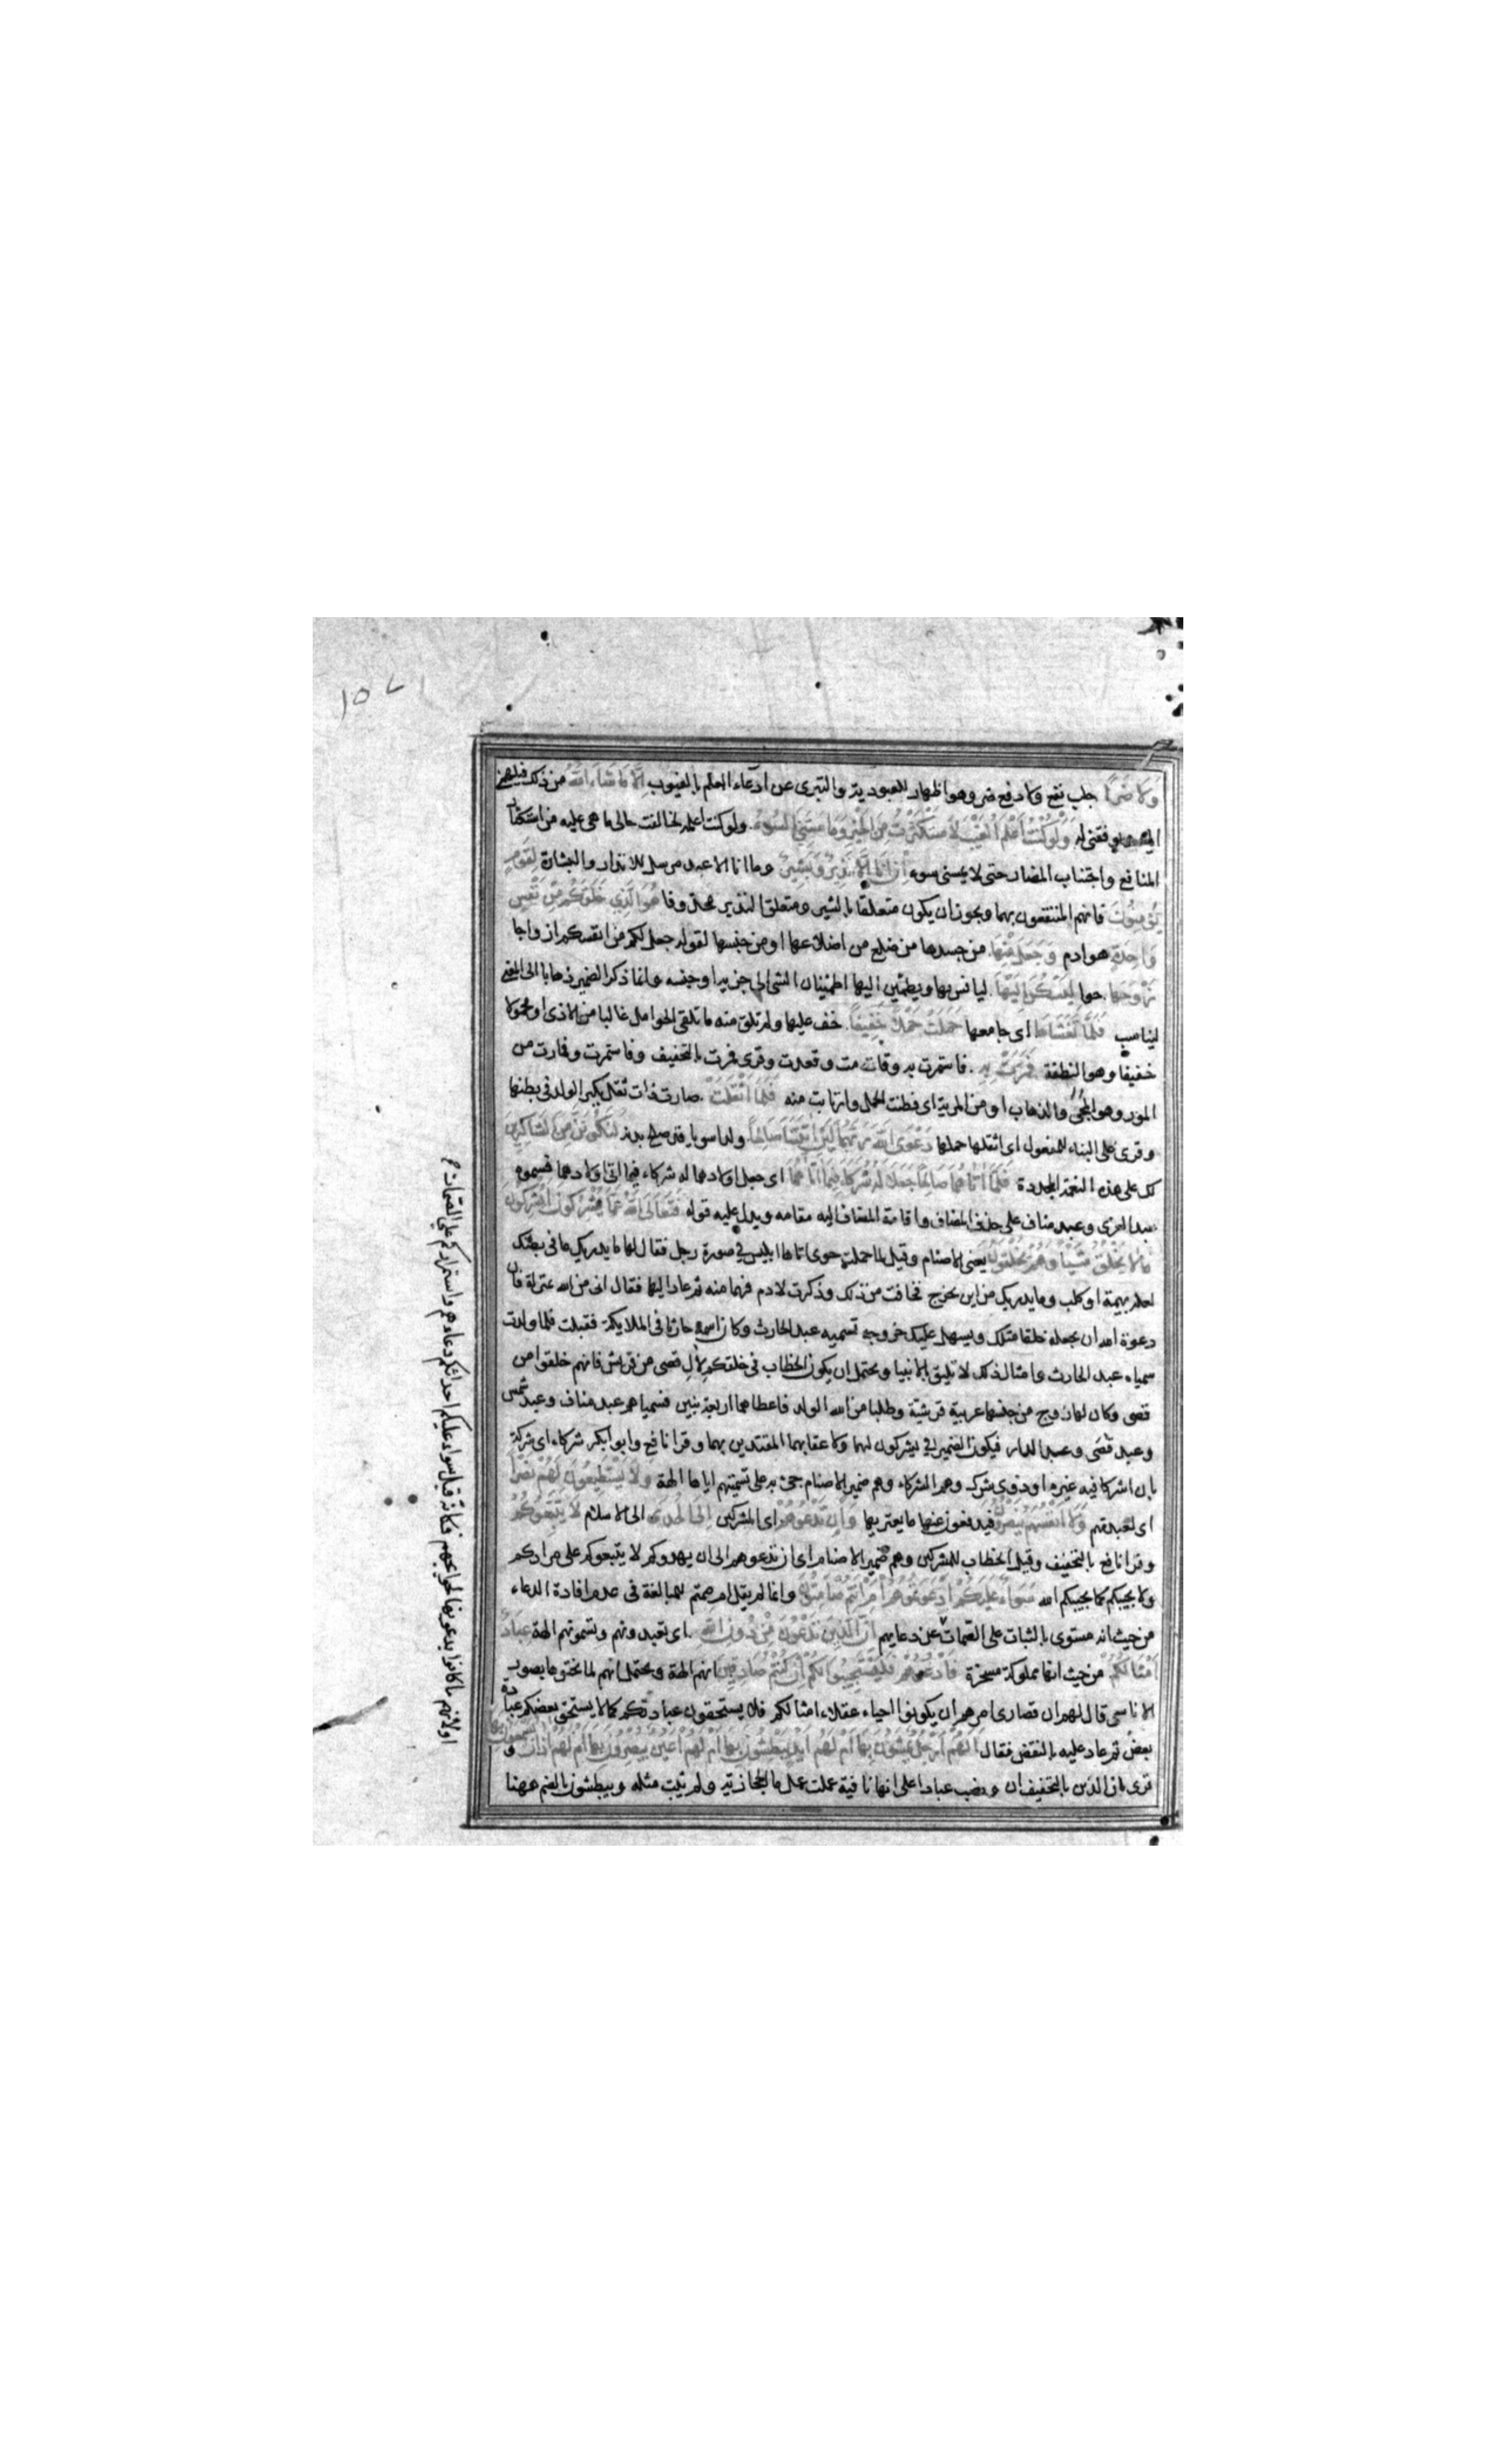 ولا ضرا جلب نفع ولا دفع ضر وهو اظهار للعبودية والتبرى عن ادعاء العلم بالغيوب الا ما شاء الله من ذلك فيلهمنى
اياه ويوفقنى له ولو كنت اعلم الغيب لاستكثرت من الخير وما مسنى السوء ولو كنت اعلمه لخالفت حالى ما هى عليه من استكثار
المنافع واجتناب المضار حتى لا يمسنى سوء ان انا الا نذير وبشير وما انا الا عبد مرسل للانذار والبشارة لقوم
يؤمنون فانهم المنتفعون بهما ويجوز ان يكون متعلقا بالبشير ومتعلق النذير محذوفا هو الذي خلقكم من نفس
واحدة هو ادم وجعل منها من جسدها من ضلع من اضلاعها او من جنسها لقوله جعل لكم من انفسكم ازواجا
زوجها حوا ليسكن اليها ليانس بها ويطمئن اليها اطمئنان الشى الى جزئه او جنسه وانما ذكر الضمير ذهابا الى المعنى
ليناسب فلما تغشاها اى جامعها حملت حملا خفيفا خف عليها ولم تلق منه ما تلقى الحوامل غالبا من الاذى او محمولا
خفيفا وهو النطفة فمرت به فاستمرت به وقامت وقعدت وقرى فمرت بالتخفيف وفاستمرت وفمارت من
المور وهو المجئ والذهاب او من المرية اى فظنت الحمل وارتابت منه فلما اثقلت صارت ذات ثقل بكبر الولد فى بطنها
وقرى على البناء للمفعول اى اثقلها حملها دعوا الله ربهما لئن اتيتنا صالحا ولدا سويا قد صلح بدنه لنكونن من الشاكرين
لك على هذه النعمة المجددة فلما اتاهما صالحا جعلا له شركاء فيما اتاهما اى جعل اولادهما له شركاء فيما اتى اولادهما فسموه
عبد العزى وعبد مناف على حذف المضاف واقامة المضاف اليه مقامه ويدل عليه قوله فتعالى الله عما يشركون ايشركون
ما لا يخلق شيئا وهم يخلقون يعنى الاصنام وقيل لما حملت حوى اتاها ابليس في صورة رجل فقال لها ما يدريك ما فى بطنك
لعله بهيمة او كلب وما يدريك من اين يخرج فخافت من ذلك وذكرت لادم فهما منه ثم عاد اليها فقال انى من الله بمنزلة فان
دعوة الله ان يجعله خلقا مثلك ويسهل عليك خروجه تسميه عبد الحارث وكان اسمه حارثا فى الملايكة فقبلت فلما ولدت
سمياه عبد الحارث وامثال ذلك لا تليق بالانبيا ويحتمل ان يكون الخطاب فى خلقكم لآل قصى من قريش فانهم خلقوا من
قصى وكان له زوج من جنسها عربية قرشية وطلبا من الله الولد فاعطاهما اربعة بنين فسمياهم عبد مناف وعبد شمس
وعبد قصى وعبد الدار فيكون الضمير في يشركون لهما ولاعقابهما المقتدين بهما وقرا نافع وابو بكر شركاء اى شركة
بان اشركا فيه غيره او ذوى شرك وهم الشركاء وهم ضمير الاصنام جئ به على تسميتهم اياها الهة ولا يستطيعون لهم نصرا
اى لعبدتهم ولا انفسهم ينصرون فيدفعون عنها ما يعتريها وان تدعوهم اى المشركين الى الهدى الى الاسلام لا يتبعوكم
وقرا نافع بالتخفيف وقيل الخطاب للمشركين وهم ضمير الاصنام اى ان تدعوهم الى ان يهدوكم لا يتبعوكم على مرادكم
ولا يجيبكم كما يجيبكم الله سواء عليكم ادعوتموهم ام انتم صامتون وانما لم يقل ام صمتم للمبالغة فى عدم افادة الدعاء
من حيث انه مستوى بالثبات على الصمات عن دعايهم ان الذين تدعون من دون الله اى تعبدونهم وتسمونهم الهة عباد
امثالكم من حيث انها مملوكة مسخرة فادعوهم فليستجيبوا لكم ان كنتم صادقين انهم الهة ويحتمل انهم لما نحتوها بصور
الاناسى قال لهم ان قصارى امرهم ان يكونوا احياء عقلاء امثالكم فلا يستحقون عبادتكم كما لا يستحق بعضكم عبادة
بعض ثم عاد عليه بالنقض فقال الهم ارجل يمشون بها ام لهم ايد يبطشون بها ام لهم اعين يبصرون بها ام لهم اذان يسمعون بها و
قرى ان الذين بالتخفيف ان ونصب عبادا على انها نافية عملت عمل ما الحجازية ولم يثبت مثله ويبطشون بالضم ههنا
او لانهم ما كانوا يدعونها لحوايجهم فكانه قيل سواء عليكم احداثكم دعاءهم واستمراركم على الصمات
١٥٧